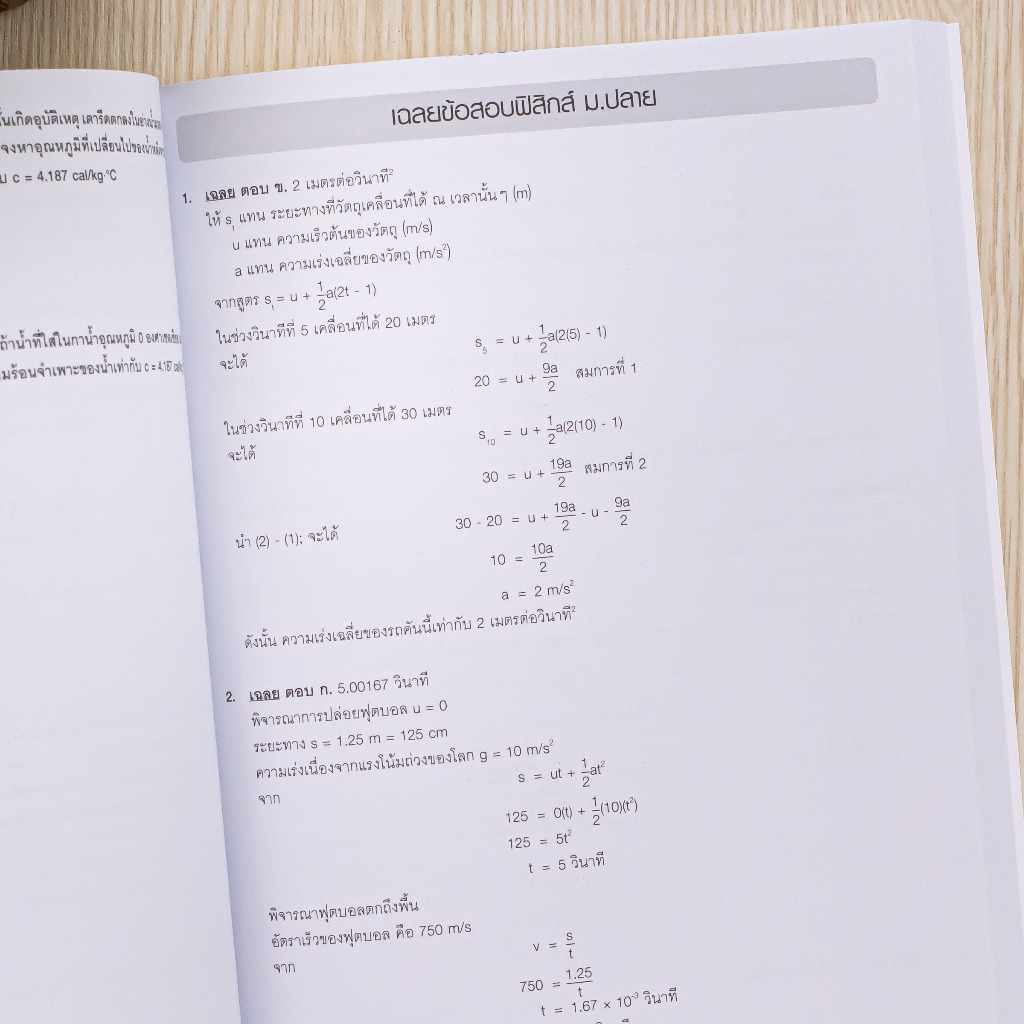 นเกิดอุบัติเหตุ เตารีดตกลงในอ่างน้ำ
จงหาอุณหภูมิที่เปลี่ยนไปของน้ำหลัง
c = 4.187 cal/kg·°C
ถ้าน้ำที่ใส่ในกาน้ำอุณหภูมิ 0 องศาเซลเซียส
ร้อนจำเพาะของน้ำเท่ากับ c = 4.187
เฉลยข้อสอบฟิสิกส์ ม.ปลาย
1. เฉลย ตอบ ข. 2 เมตรต่อวินาที²
ให้ sₜ แทน ระยะทางที่วัตถุเคลื่อนที่ได้ ณ เวลานั้นๆ (m)
u แทน ความเร็วต้นของวัตถุ (m/s)
a แทน ความเร่งเฉลี่ยของวัตถุ (m/s²)
จากสูตร sₜ = u + 1/2 a(2t - 1)
ในช่วงวินาทีที่ 5 เคลื่อนที่ได้ 20 เมตร
จะได้ s₅ = u + 1/2 a(2(5) - 1)
20 = u + 9a/2 สมการที่ 1
ในช่วงวินาทีที่ 10 เคลื่อนที่ได้ 30 เมตร
จะได้ s₁₀ = u + 1/2 a(2(10) - 1)
30 = u + 19a/2 สมการที่ 2
นำ (2) - (1); จะได้ 30 - 20 = u + 19a/2 - u - 9a/2
10 = 10a/2
a = 2 m/s²
ดังนั้น ความเร่งเฉลี่ยของรถคันนี้เท่ากับ 2 เมตรต่อวินาที²
2. เฉลย ตอบ ก. 5.00167 วินาที
พิจารณาการปล่อยฟุตบอล u = 0
ระยะทาง s = 1.25 m = 125 cm
ความเร่งเนื่องจากแรงโน้มถ่วงของโลก g = 10 m/s²
จาก s = ut + 1/2 at²
125 = 0(t) + 1/2 (10)(t²)
125 = 5t²
t = 5 วินาที
พิจารณาฟุตบอลตกถึงพื้น
อัตราเร็วของฟุตบอล คือ 750 m/s
จาก v = s/t
750 = 1.25/t
t = 1.67 × 10⁻³ วินาที